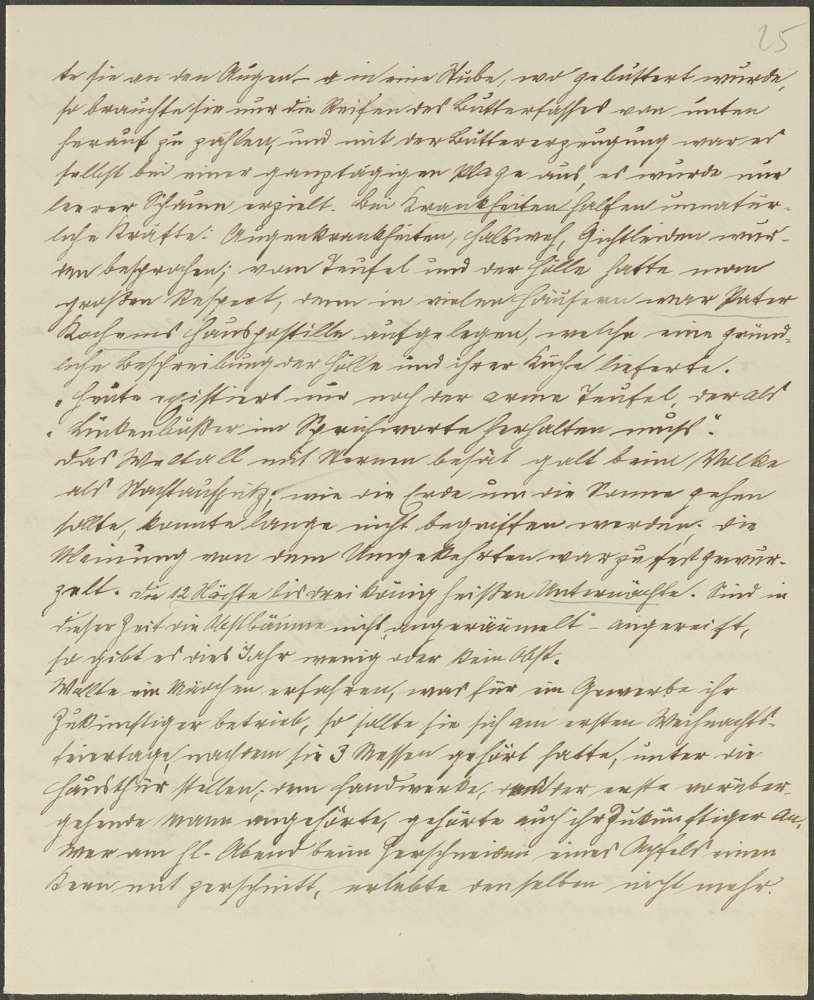 25
te sie an den Augen – in eine Stube, wo gebuttert wurde,
so brauchte sie nur die Reifen des Butterfasses von unten
herauf zu zählen, und mit der Buttererzeugung war es
selbst bei einer ganztägigen Plage aus, es wurde nur
leerer Schaum erzielt. Bei Krankheiten halfen unnatür-
liche Kräfte: Augenkrankheiten, Halsweh, Gichtleiden wur-
den besprochen; vom Teufel und der Hölle hatte man
großen Respect, denn in vielen Häusern war Pater
Kochems Hauspostille aufgelegen, welche eine gründ-
liche Beschreibung der Hölle und ihrer Küche lieferte.
„Heute existiert nur noch der arme Teufel, der als
„Lückenbüßer im Sprichworte herhalten muß".
Das Weltall mit Sternen besät galt beim Volke
als Nachtaufputz; wie die Erde um die Sonne gehen
sollte, konnte lange nicht begriffen werden; die
Meinung von dem Umgekehrten war zu fest gewur-
zelt. Die 12 Nächte bis drei König heißen Unternächte. Sind in
dieser Zeit die Obstbäume nicht „angeräumelt" – angereift,
so gibt es dies Jahr wenig oder kein Obst.
Wollte ein Mädchen erfahren, was für ein Gewerbe ihr
Zukünftiger betrieb, so sollte sie sich am ersten Weihnachts-
feiertage, nachdem sie 3 Messen gehört hatte, unter die
Hausthür stellen; dem Handwerke, dem der erste vorüber-
gehende Mann angehörte, gehörte auch ihr Zukünftiger an.
Wer am hl. Abend beim Zerschneiden eines Apfels einen
Kern mit zerschnitt, erlebte denselben nicht mehr.